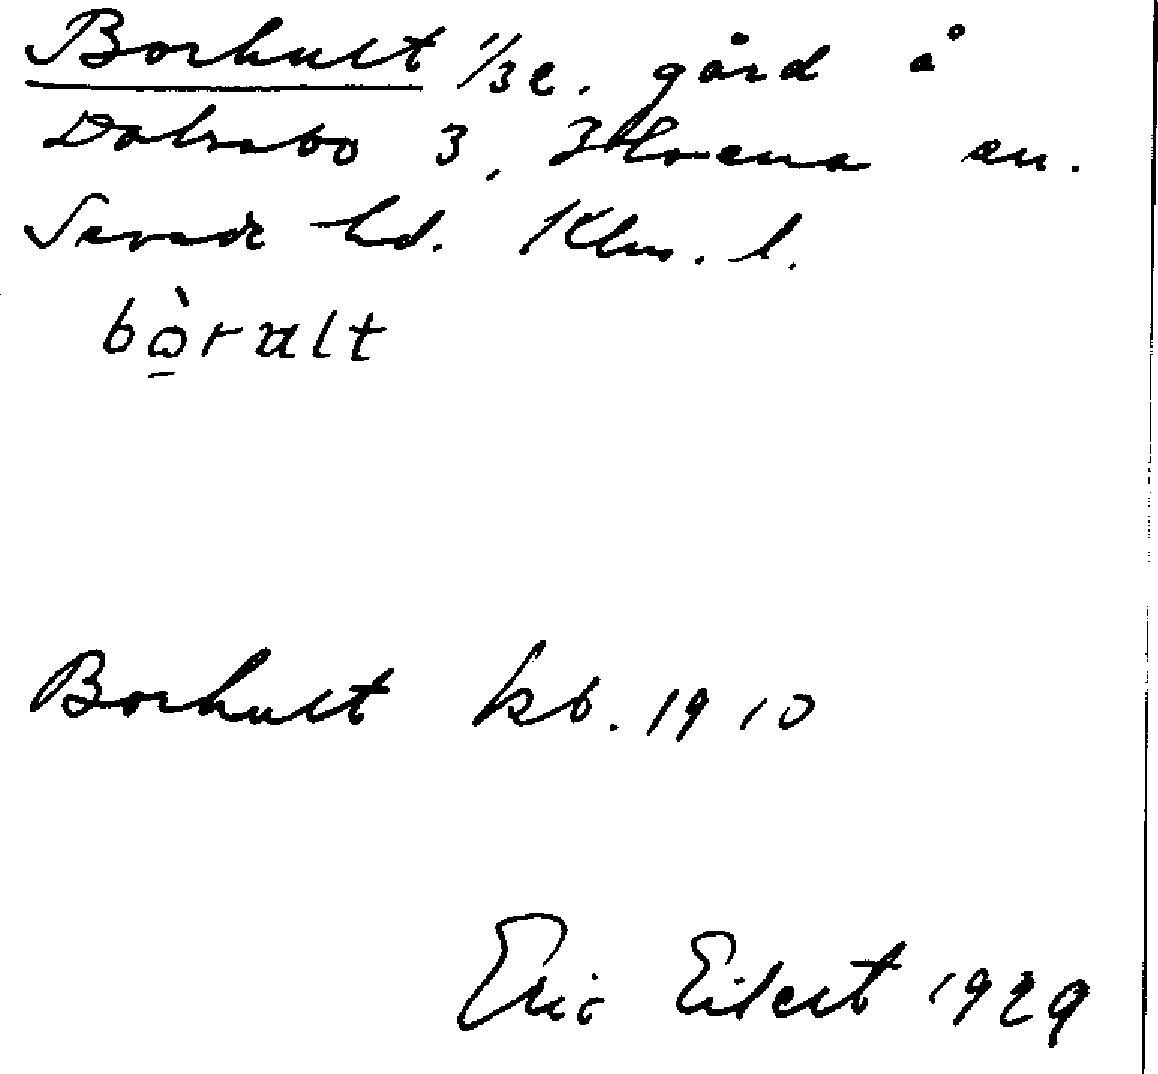 Borhult 1/3 e. gård å
Dalsebo 3, Hvena sn.
Sevede hd. Klm. l.
bòralt
Borhult kb. 1910
Eric Eilert 1929